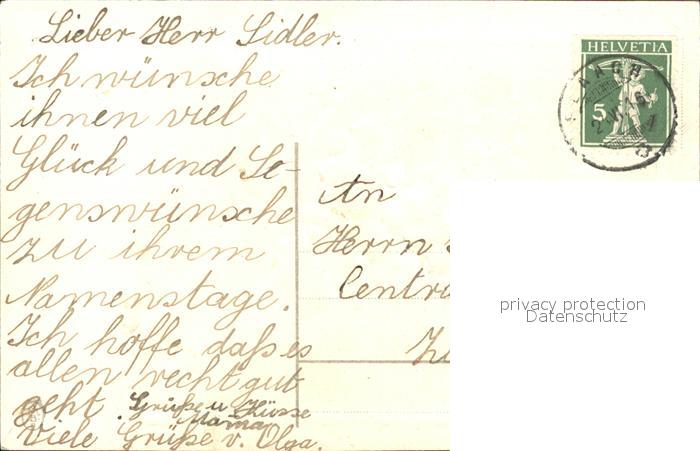 Lieber Herr Sidler.
Ich wünsche
ihnen viel
Glück und Se-
genswünsche
zu ihrem
Namenstage.
Ich hoffe daß es
allen recht gut
geht. Grüße u Küsse
Mama
Viele Grüße v. Olga.
An
Herrn
HELVETIA
5
privacy protection
Datenschutz